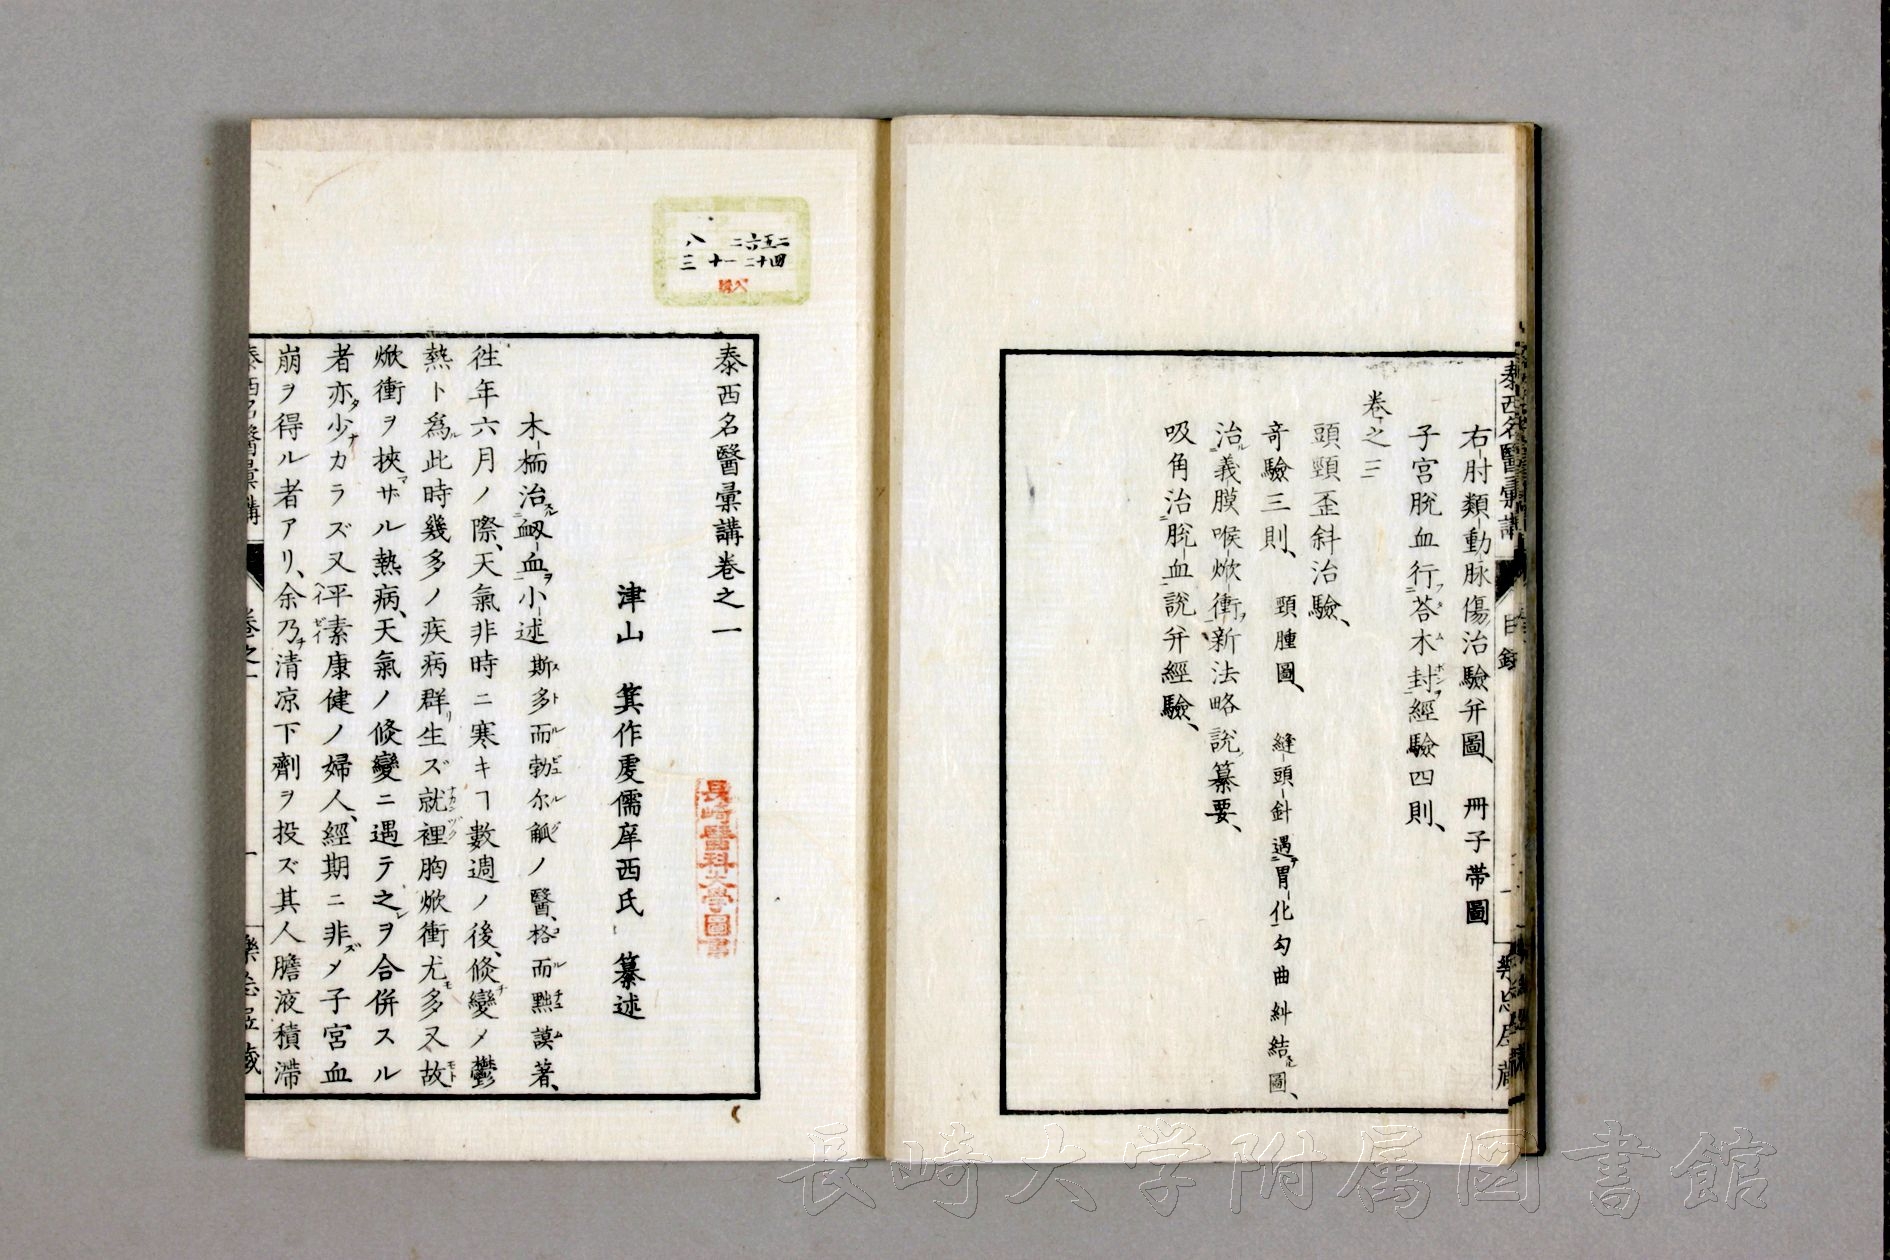 右肘類動脉傷治驗并圖、 冊子帶圖
子宮脫血行荅木封經驗四則、
卷之三
頭頸歪斜治驗、
竒驗三則、 頸腫圖、 縫頭針遇胃化勾曲糾結圖、
治義膜喉焮衝新法略說纂要、
吸角治脫血說并經驗、
泰西名醫彙講
目録
泰西名醫彙講卷之一
津山 箕作虔儒庠西氏 纂述
木桶治衂血小述 斯多而勃尔觚ノ醫、格而點謨著、
徃年六月ノ際、天氣非時ニ寒キヿ數週ノ後、倏變メ鬱
熱ト爲此時幾多ノ疾病群生ズ就裡胸焮衝尤多又故
焮衝ヲ挾ザル熱病、天氣ノ倏變ニ遇テ之ヲ合併スル
者亦少カラズ又平素康健ノ婦人、經期ニ非メ子宮血
崩ヲ得ル者アリ、余乃清凉下劑ヲ投ズ其人膽液積滯
泰西名醫彙講
卷之一
一
二五六二 八
四十二一十 三
長崎醫科大學圖書
長崎大学附属図書館